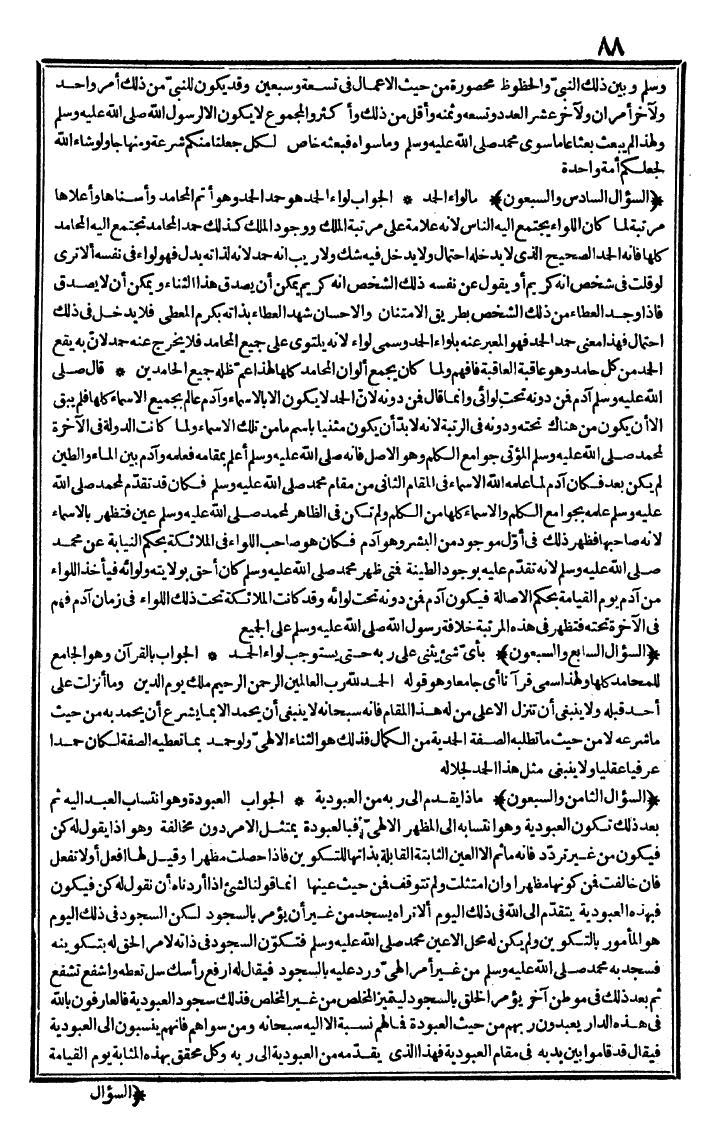 ٨٨
وسلم وبين ذلك النبيّ والحظوظ محصورة من حيث الاعمال فى تسعة وسبعين وقد يكون للنبيّ من ذلك أمر واحد
ولآخر أمران ولآخر عشر العدد وتسعه وثمنه وأقل من ذلك وأكثر والمجموع لا يكون الا لرسول الله صلى الله عليه وسلم
ولهذا لم يبعث بعثا عاما سوى محمد صلى الله عليه وسلم وما سواه فبعثه خاص لكل جعلنا منكم شرعة ومنهاجا ولو شاء الله
لجعلكم أمة واحدة
﴿السؤال السادس والسبعون﴾ ما لواء الحمد * الجواب لواء الحمد هو حمد الحمد وهو أتم المحامد وأسناها وأعلاها
مرتبة لما كان اللواء يجتمع اليه الناس لانه علامة على مرتبة الملك ووجود الملك كذلك حمد المحامد تجتمع اليه المحامد
كلها فانه الحمد الصحيح الذى لا يدخله احتمال ولا يدخل فيه شك ولا ريب انه حمد لانه لذاته يدل فهو لواء فى نفسه ألا ترى
لو قلت فى شخص انه كريم أو يقول عن نفسه ذلك الشخص انه كريم يمكن أن يصدق هذا الثناء ويمكن أن لا يصدق
فاذا وجد العطاء من ذلك الشخص بطريق الامتنان والاحسان شهد العطاء بذاته بكرم المعطى فلا يدخل فى ذلك
احتمال فهذا معنى حمد الحمد فهو المعبر عنه بلواء الحمد وسمى لواء لانه يلتوى على جميع المحامد فلا يخرج عنه حمد لانّ به يقع
الحمد من كل حامد وهو عاقبة العاقبة فافهم ولما كان يجمع ألوان المحامد كلها لهذا عمّ ظله جميع الحامدين * قال صلى
الله عليه وسلم آدم فمن دونه تحت لوائى وانما قال فمن دونه لانّ الحمد لا يكون الا بالاسماء وآدم عالم بجميع الاسماء كلها فلم يبق
الا أن يكون من هناك تحته ودونه فى الرتبة لانه لا بدّ أن يكون مثنيا باسم ما من تلك الاسماء ولما كانت الدولة فى الآخرة
لمحمد صلى الله عليه وسلم المؤتى جوامع الكلم وهو الاصل فانه صلى الله عليه وسلم أعلم بمقامه فعلمه وآدم بين الماء والطين
لم يكن بعد فكان آدم لما علمه الله الاسماء فى المقام الثانى من مقام محمد صلى الله عليه وسلم فكان قد تقدّم لمحمد صلى الله
عليه وسلم علمه بجوامع الكلم والاسماء كلها من الكلم ولم تكن فى الظاهر لمحمد صلى الله عليه وسلم عين فتظهر بالاسماء
لانه صاحبها فظهر ذلك فى أوّل موجود من البشر وهو آدم فكان هو صاحب اللواء فى الملائكة بحكم النيابة عن محمد
صلى الله عليه وسلم لانه تقدّم عليه بوجود الطينة فمتى ظهر محمد صلى الله عليه وسلم كان أحق بولايته ولوائه فيأخذ اللواء
من آدم يوم القيامة بحكم الاصالة فيكون آدم فمن دونه تحت لوائه وقد كانت الملائكة تحت ذلك اللواء فى زمان آدم فهم
فى الآخرة تحته فتظهر فى هذه المرتبة خلافة رسول الله صلى الله عليه وسلم على الجميع
﴿السؤال السابع والسبعون﴾ بأىّ شئ يثنى على ربه حتى يستوجب لواء الحمد * الجواب بالقرآن وهو الجامع
للمحامد كلها ولهذا سمى قرآنا أى جامعا وهو قوله الحمد لله رب العالمين الرحمن الرحيم ملك يوم الدين وما أنزلت على
أحد قبله ولا ينبغى أن تنزل الا على من له هذا المقام فانه سبحانه لا ينبغى أن يحمد الا بما يشرع أن يحمد به من حيث
ما شرعه لا من حيث ما تطلبه الصفة الحمدية من الكمال فذلك هو الثناء الالهىّ ولو حمد بما تعطيه الصفة لكان حمدا
عرفيا عقليا ولا ينبغى مثل هذا الحمد لجلاله
﴿السؤال الثامن والسبعون﴾ ماذا يقدم الى ربه من العبودية * الجواب العبودة وهو انتساب العبد اليه ثم
بعد ذلك تكون العبودية وهو انتسابه الى المظهر الالهىّ فبالعبودة يمتثل الامر دون مخالفة وهو اذا يقول له كن
فيكون من غير تردّد فانه ما ثم الا العين الثابتة القابلة بذاتها للتكوين فاذا حصلت مظهرا وقيل لها افعل أو لا تفعل
فان خالفت فمن كونها مظهرا وان امتثلت ولم تتوقف فمن حيث عينها انما قولنا لشئ اذا أردناه أن نقول له كن فيكون
فبهذه العبودية يتقدّم الى الله فى ذلك اليوم ألا تراه يسجد من غير أن يؤمر بالسجود لكن السجود فى ذلك اليوم
هو المأمور بالتكوين ولم يكن له محل الا عين محمد صلى الله عليه وسلم فتكوّن السجود فى ذاته لامر الحق له بتكوينه
فسجد به محمد صلى الله عليه وسلم من غير أمر الهىّ ورد عليه بالسجود فيقال له ارفع رأسك سل تعطه واشفع تشفع
ثم بعد ذلك فى موطن آخر يؤمر الخلق بالسجود ليتميز المخلص من غير المخلص فذلك سجود العبودية فالعارفون بالله
فى هذه الدار يعبدون ربهم من حيث العبودة فما لهم نسبة الا اليه سبحانه ومن سواهم فانهم ينسبون الى العبودية
فيقال قد قاموا بين يديه فى مقام العبودية فهذا الذى يقدّمه من العبودية الى ربه وكل محقق بهذه المثابة يوم القيامة
﴿السؤال